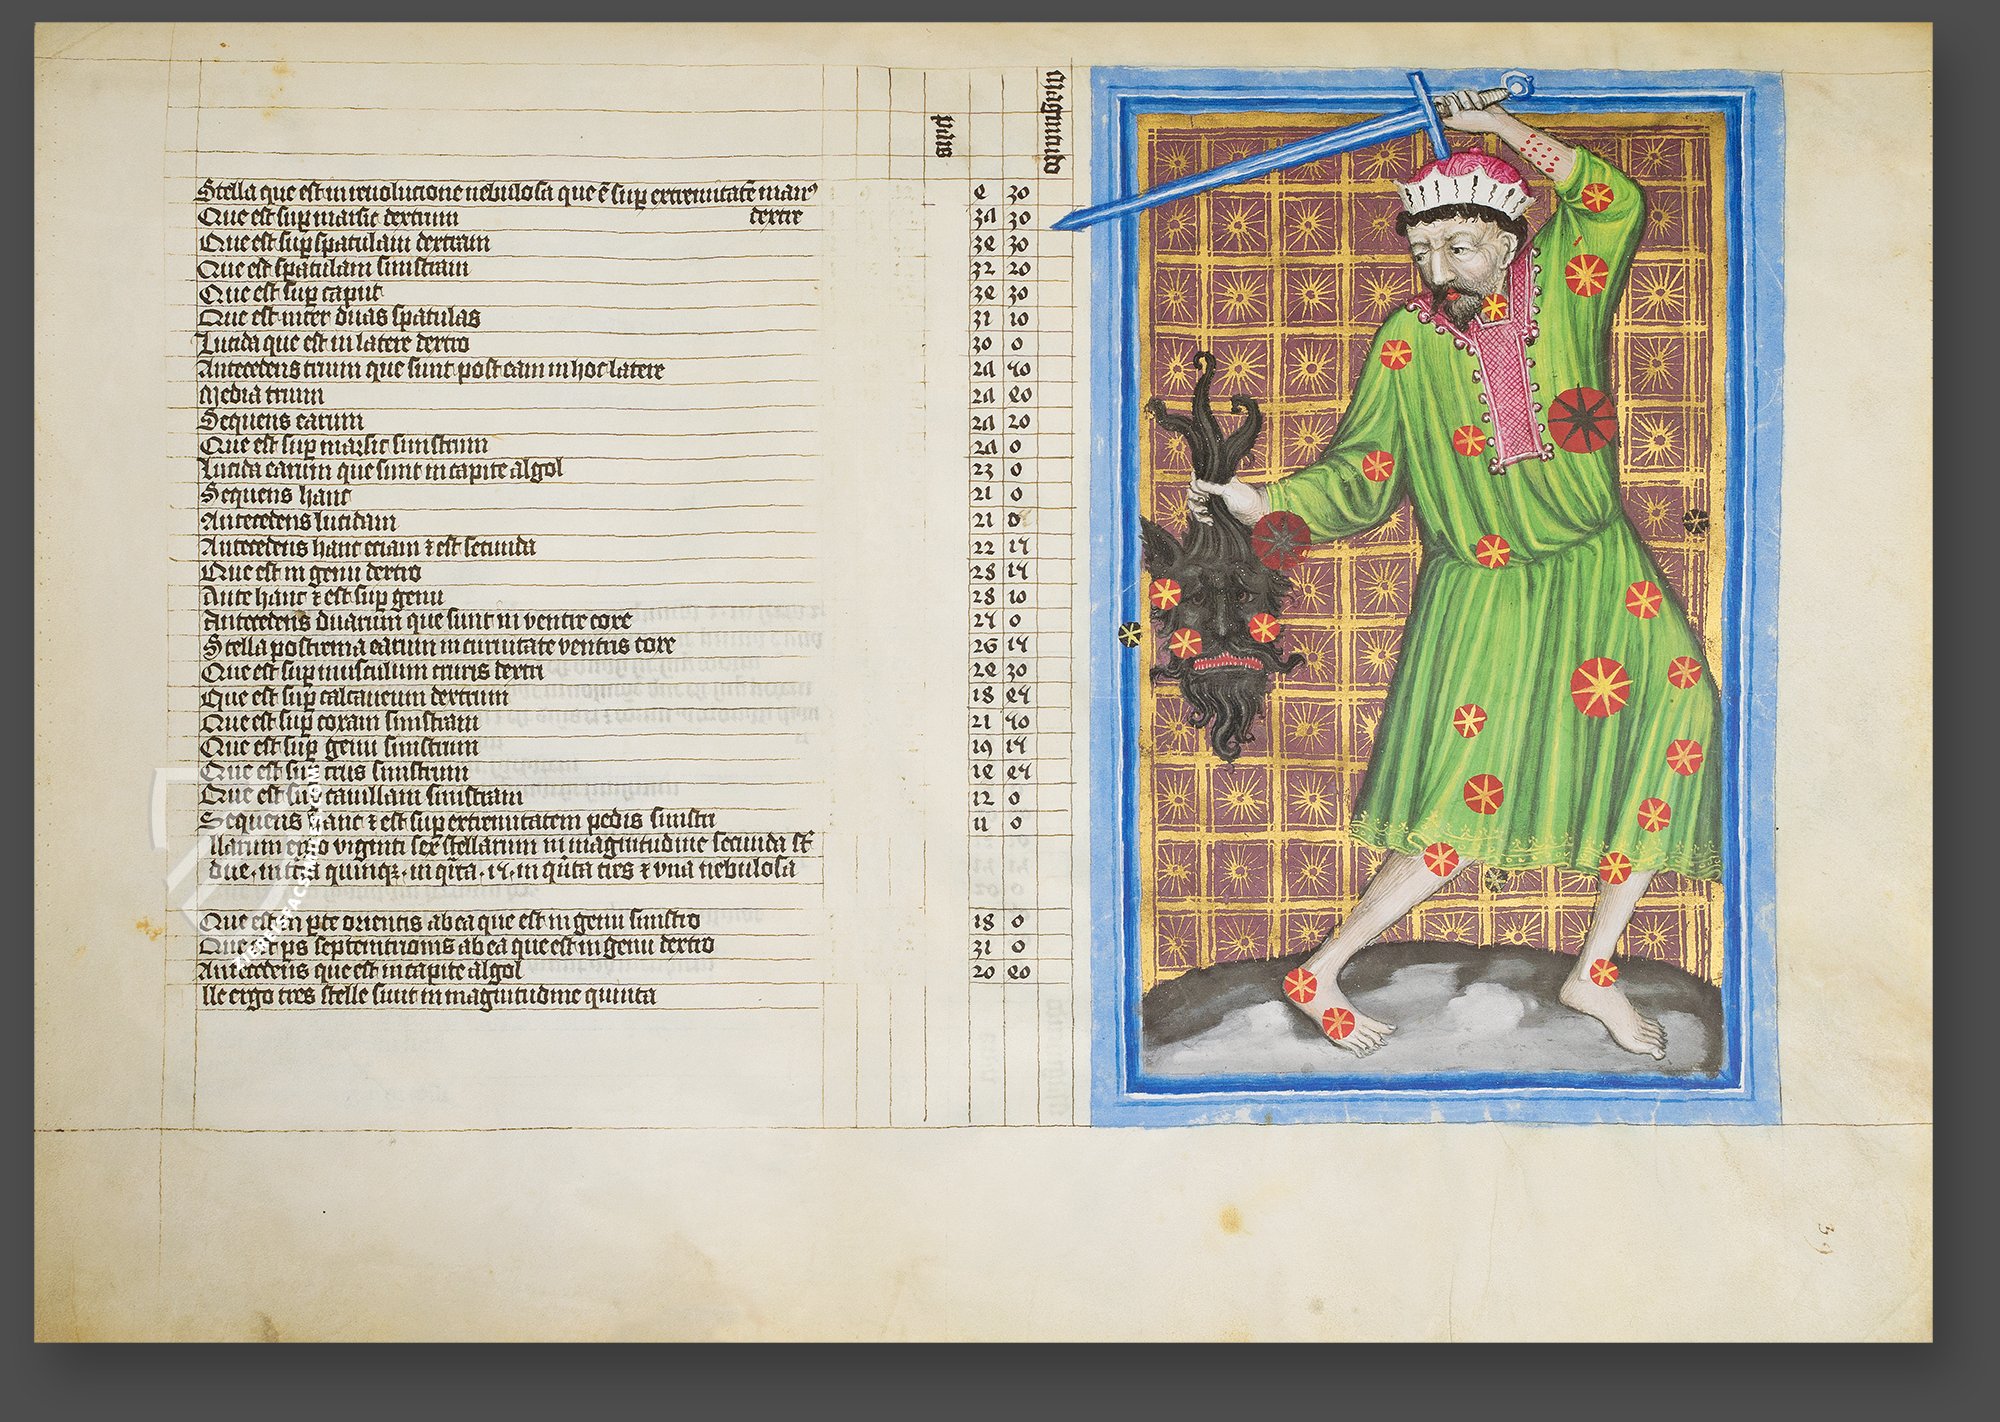 pars
magnitudo
Stella que est in reuolucione nebulosa que ē sup extremitatē man9 e 30
dextre
Que est sup marsic dextrum 3Λ 30
Que est sup spatulam dextram 3e 30
Que est spatulam sinistram 32 20
Que est sup caput 3e 30
Que est inter duas spatulas 31 10
Lucida que est in latere dextro 30 0
Antecedens trium que sunt post eam in hoc latere 2Λ 40
Media trium 2Λ e0
Sequens earum 2Λ 20
Que est sup marsic sinistrum 2Λ 0
Lucida earum que sunt in capite algol 23 0
Sequens hanc 21 0
Antecedens lucidam 21 0
Antecedens hanc eciam ⁊ est secunda 22 14
Que est in genu dextro 28 14
Ante hanc ⁊ est sup genu 28 10
Antecedens duarum que sunt in ventre coxe 24 0
Stella postrema earum in curuitate ventris coxe 26 14
Que est sup musculum cruris dextri 2e 30
Que est sup calcaneum dextrum 18 e4
Que est sup coxam sinistram 21 40
Que est sup genu sinistrum 19 14
Que est sup crus sinistrum 1e e4
Que est sup cauillam sinistram 12 0
Sequens hanc ⁊ est sup extremitatem pedis sinistri 11 0
llarum ergo viginti sex stellarum in magnitudine secunda st̄
due · in tcia quinqꝫ · in qrta · 14 · in qnta tres ⁊ vna nebulosa
Que est in pte orientis ab ea que est in genu sinistro 18 0
Que est ps septentrionis ab ea que est in genu dextro 31 0
Antecedens que est in capite algol 20 e0
lle ergo tres stelle sunt in magnitudine quinta